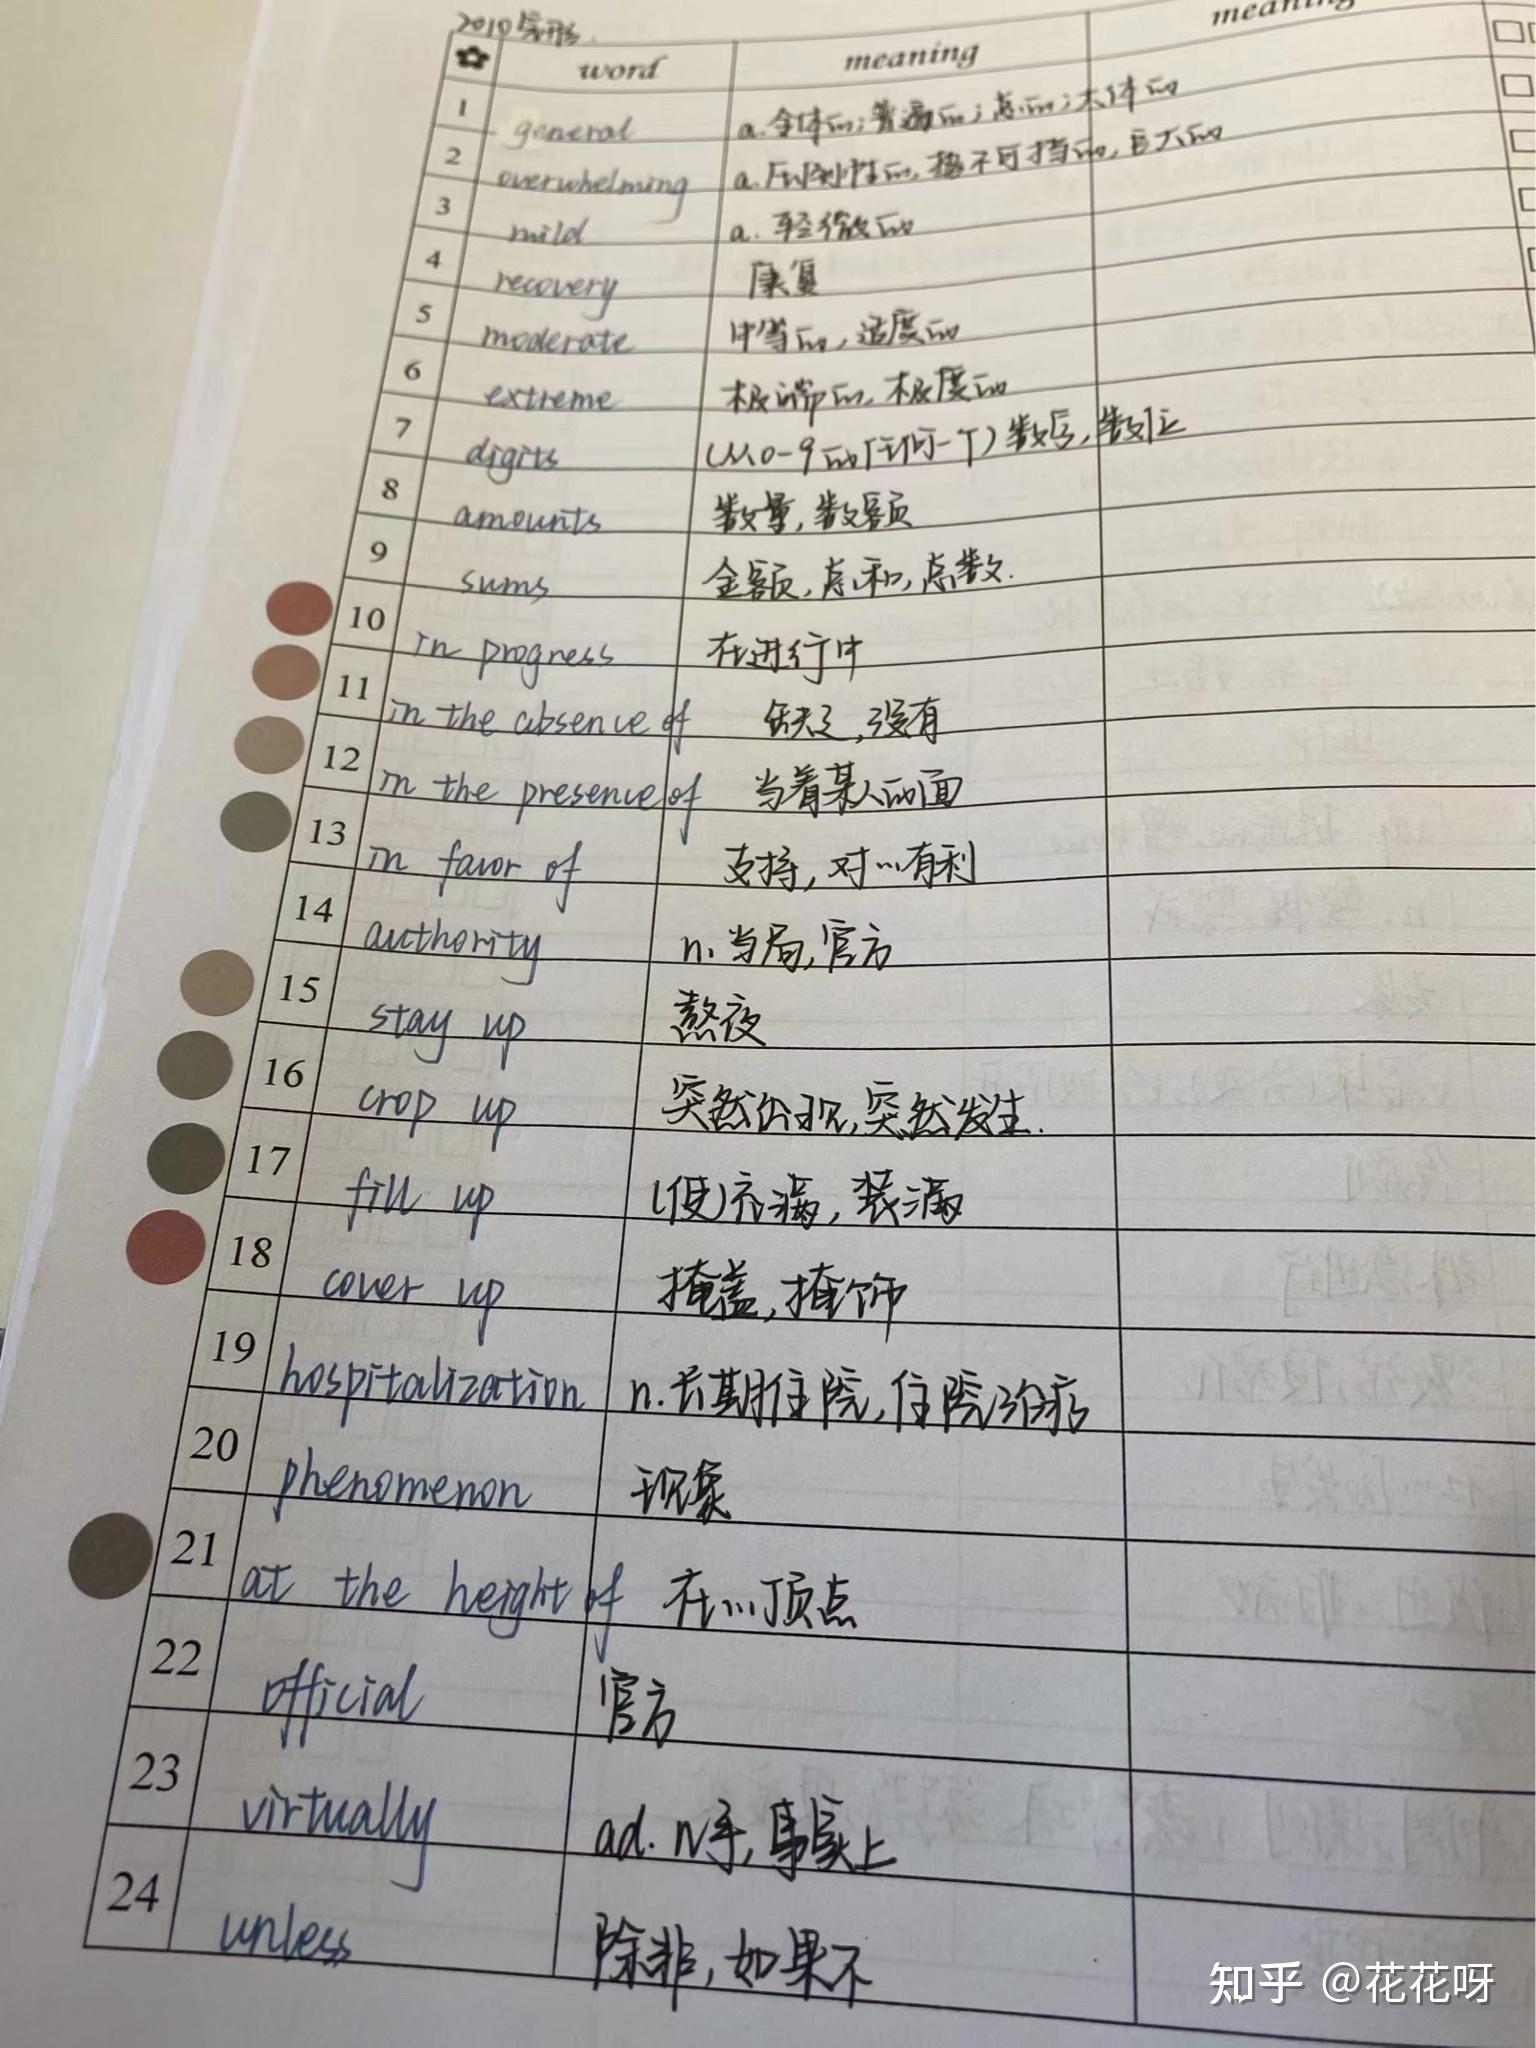 2010完形.
word meaning meaning
1 general a.全体的;普遍的;总的;大体的
2 overwhelming a.压倒性的,势不可挡的,巨大的
3 mild a.轻微的
4 recovery 康复
5 moderate 中等的,适度的
6 extreme 极端的,极度的
7 digits (从0-9的任何一个)数字,数位
8 amounts 数量,数额
9 sums 金额,总和,总数.
10 in progress 在进行中
11 in the absence of 缺乏,没有
12 in the presence of 当着某人的面
13 in favor of 支持,对…有利
14 authority n.当局,官方
15 stay up 熬夜
16 crop up 突然出现,突然发生.
17 fill up (使)充满,装满
18 cover up 掩盖,掩饰
19 hospitalization n.长期住院,住院治疗
20 phenomenon 现象
21 at the height of 在…顶点
22 official 官方
23 virtually ad.几乎,事实上
24 unless 除非,如果不
知乎 @花花呀